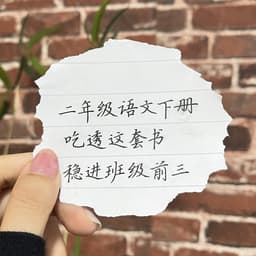 二年级语文下册
吃透这套书
稳进班级前三